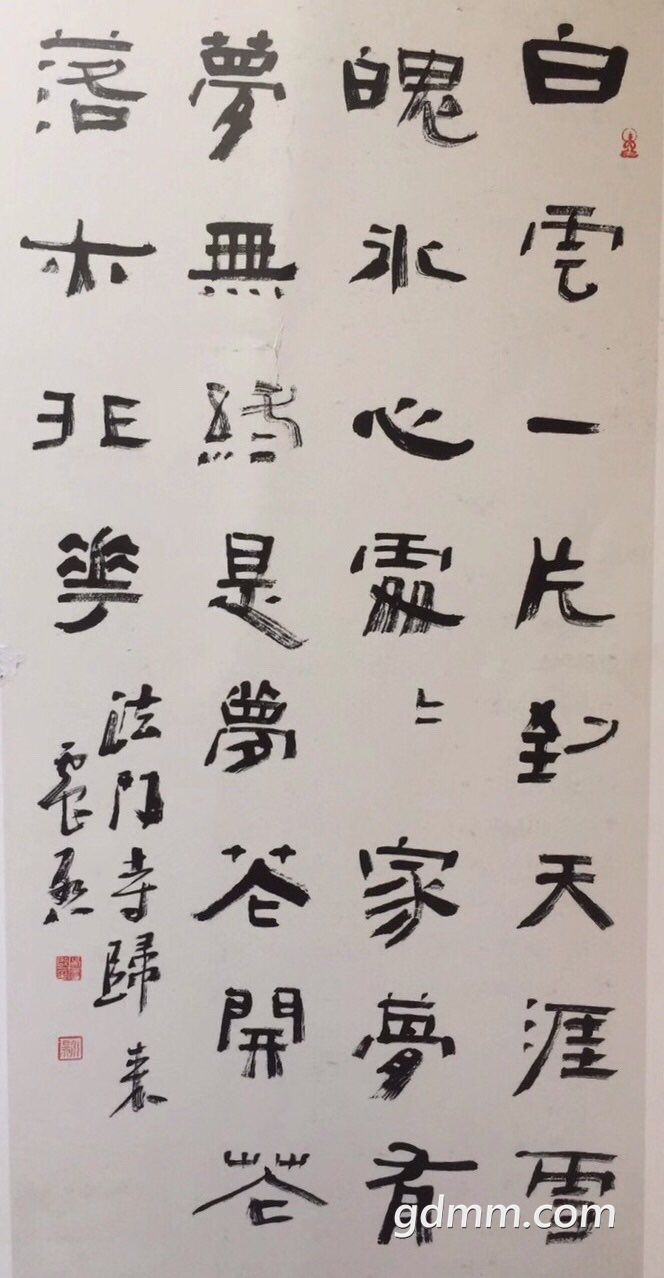 白雲一片到天涯雪
魄冰心處〻家夢有
夢無緣是夢花開花
落亦非花
法門寺歸来
震
gdmm.com